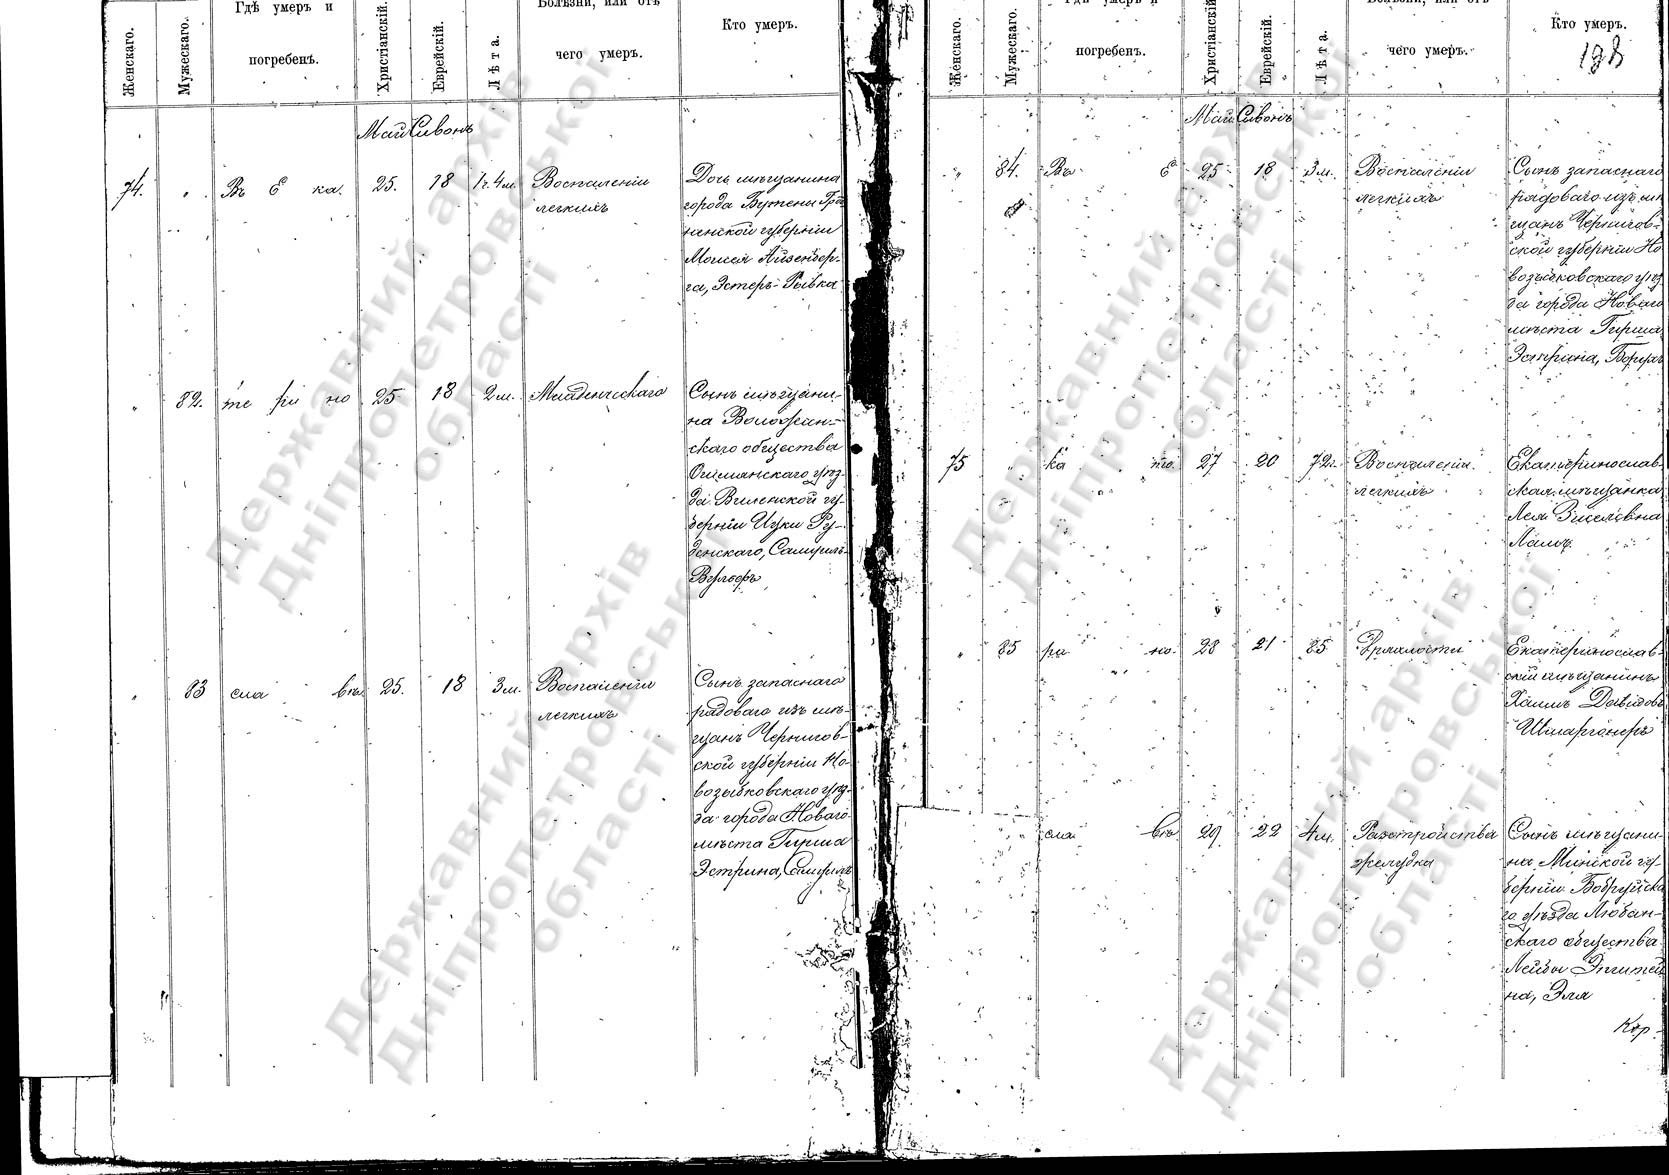 Женскаго.
Мужескаго.
Гдѣ умеръ и
погребенъ.
Христіанскій.
Еврейскій.
Лѣта.
Болѣзни, или отъ
чего умеръ.
Кто умеръ.
Май Сивонъ
74. " Въ Е ка. 25. 18 1г.4м. Воспаленіи
легкихъ
Дочь мѣщанина
города
губерніи
Моисея Айзенбер-
га, Эстеръ-Рывка
" 82. те ри но 25 18 2м. Младенческаго
Сынъ мѣщани-
на Воложин-
скаго общества
Ошмянскаго уѣз-
да Виленской гу-
берніи Ицки Ру-
денскаго, Самуилъ-
Вульфъ
" 83 сла вѣ 25. 18 3м. Воспаленіи
легкихъ
Сынъ запаснаго
рядоваго изъ мѣ-
щанъ Чернигов-
ской губерніи Но-
возыбковскаго уѣз-
да города Новаго
мѣста Гирша
Эстрина, Самуилъ
Женскаго.
Мужескаго.
Гдѣ умеръ и
погребенъ.
Христіанскій
Еврейскій
Лѣта.
Болѣзни, или отъ
чего умеръ.
Кто умеръ.
198
Май Сивонъ
" 84. Въ Е 25 18 3м. Воспаленіи
легкихъ
Сынъ запаснаго
рядоваго изъ мѣ
щанъ Чернигов-
ской губерніи Но
возыбковскаго уѣз
да города Новаго
мѣста Гирша
Эстрина, Борухъ
75 " ка те. 27 20 72г. Воспаленіи
легкихъ
Екатеринослав-
ская мѣщанка
Лея
" 85 ри но. 28 21 85 Дряхлости
Екатеринослав-
скій мѣщанинъ
Хаимъ Давидовъ
Шмаргонеръ
сла вѣ 29. 22 4м. Разстройства
желудка
Сынъ мѣщани-
на Минской гу-
берніи Бобруйска
го уѣзда Любан-
скаго общества
Лейбы Эпштей
на, Эля
Кор-
Державний архів
Дніпропетровської
області
Державний архів
Дніпропетровської
області
Державний архів
Дніпропетровської
області
Державний архів
Дніпропетровської
області